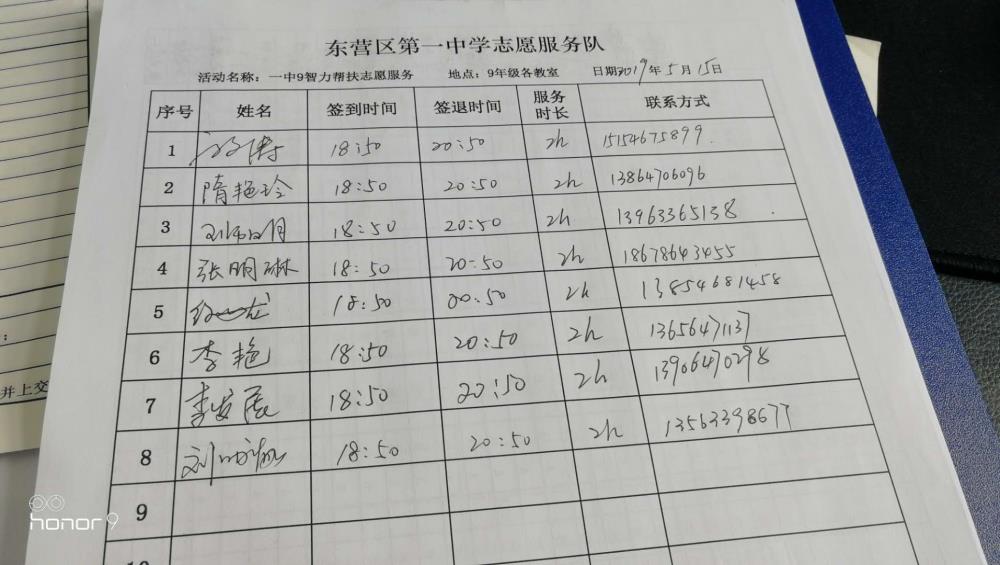 东营区第一中学志愿服务队
活动名称：一中9智力帮扶志愿服务 地点：9年级各教室 日期2019年5月15日
序号 姓名 签到时间 签退时间 服务时长 联系方式
1 18:50 20:50 2h 15154675899
2 隋艳玲 18:50 20:50 2h 13864706096
3 18:50 20:50 2h 13963365138
4 张明琳 18:50 20:50 2h 18678643455
5 18:50 20:50 2h 13854681458
6 李艳 18:50 20:50 2h 13656471137
7 李发展 18:50 20:50 2h 13906470298
8 刘 18:50 20:50 2h 13563398677
9
10
并上交
honor 9